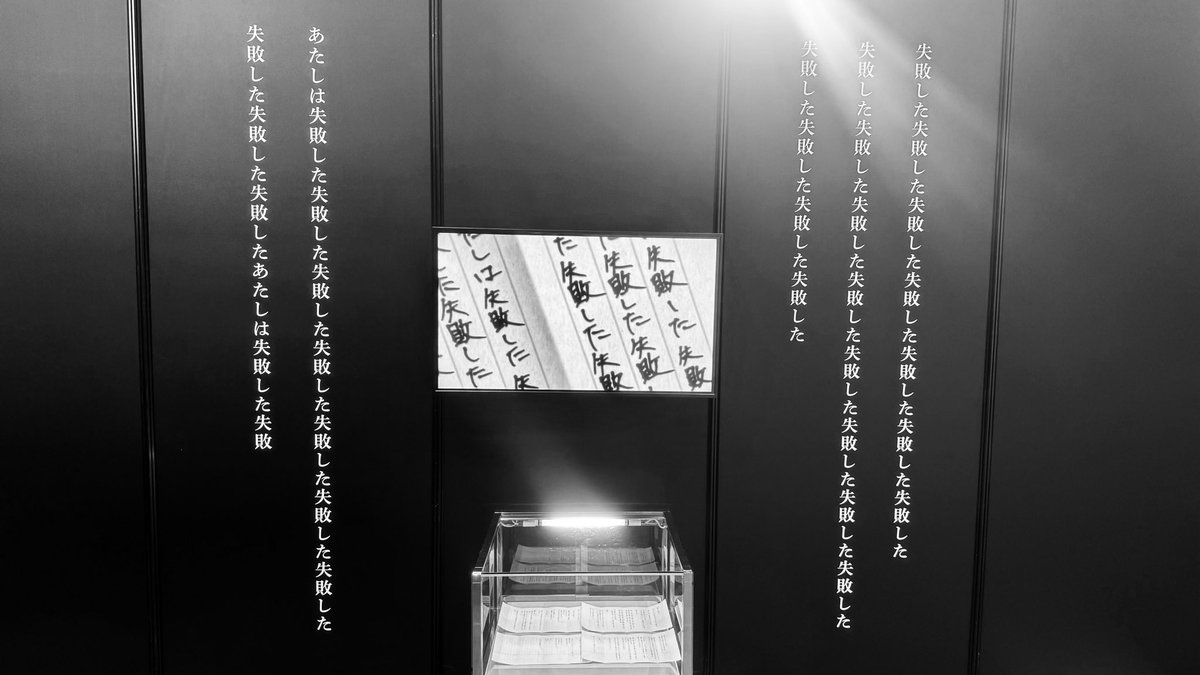 失敗した失敗した失敗した失敗した失敗した失敗した失敗した
失敗した失敗した失敗した失敗した失敗した失敗した失敗した失敗した
失敗した失敗した失敗した失敗した
失敗した失敗
失敗した失敗
た失敗した失敗
たしは失敗した失
た失敗した
あたしは失敗した失敗した失敗した失敗した失敗した失敗した失敗した
失敗した失敗した失敗したあたしは失敗した失敗